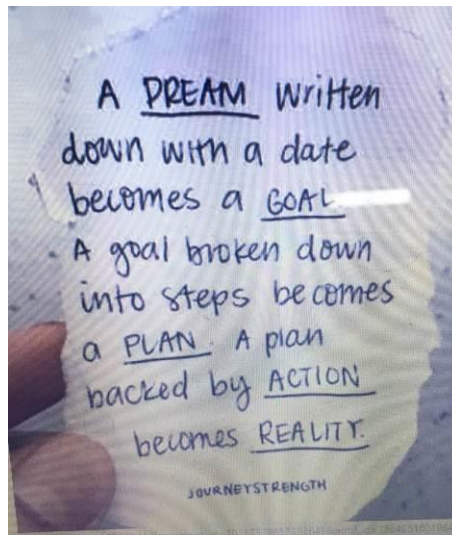 A DREAM written
down with a date
becomes a GOAL
A goal broken down
into steps becomes
a PLAN. A plan
backed by ACTION
becomes REALITY.
JOURNEYSTRENGTH